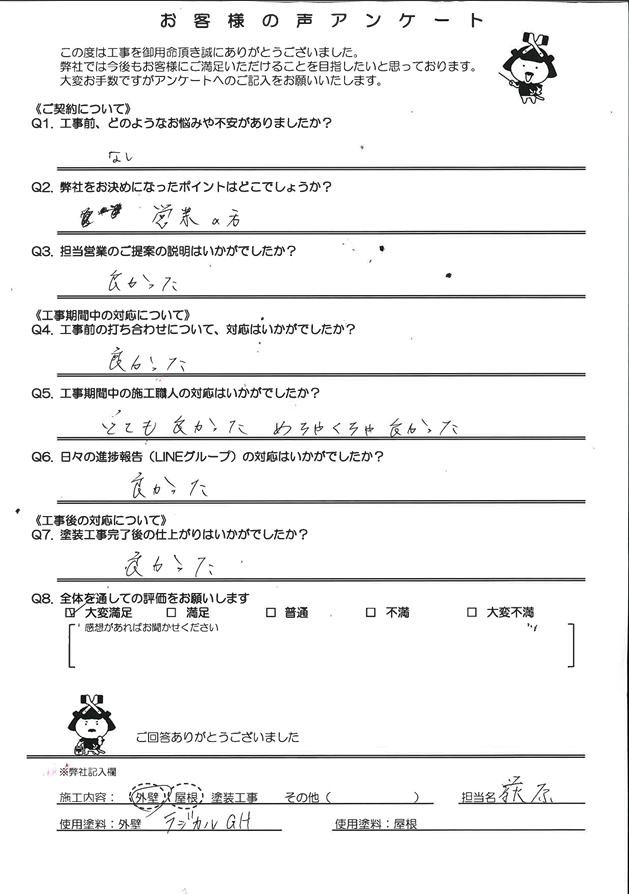 お客様の声アンケート
この度は工事を御用命頂き誠にありがとうございました。
弊社では今後もお客様にご満足いただけることを目指したいと思っております。
大変お手数ですがアンケートへのご記入をお願いいたします。
《ご契約について》
Q1. 工事前、どのようなお悩みや不安がありましたか？
なし
Q2. 弊社をお決めになったポイントはどこでしょうか？
営業の方
Q3. 担当営業のご提案の説明はいかがでしたか？
良かった
《工事期間中の対応について》
Q4. 工事前の打ち合わせについて、対応はいかがでしたか？
良かった
Q5. 工事期間中の施工職人の対応はいかがでしたか？
とても良かった めちゃくちゃ良かった
Q6. 日々の進捗報告（LINEグループ）の対応はいかがでしたか？
良かった
《工事後の対応について》
Q7. 塗装工事完了後の仕上がりはいかがでしたか？
良かった
Q8. 全体を通しての評価をお願いします
☑ 大変満足 □ 満足 □ 普通 □ 不満 □ 大変不満
感想があればお聞かせください
ご回答ありがとうございました
※弊社記入欄
施工内容： 外壁 屋根 塗装工事 その他（ ） 担当名 荻原
使用塗料：外壁 ラジカルGH 使用塗料：屋根